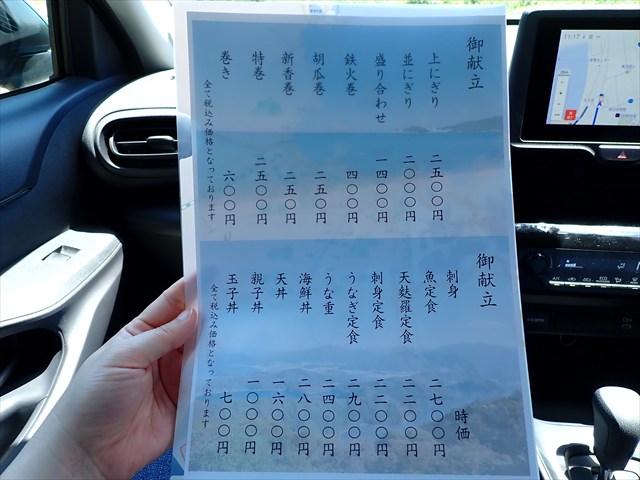 御献立
上にぎり 二五〇〇円
並にぎり 二〇〇〇円
盛り合わせ 一四〇〇円
鉄火巻 四〇〇円
胡瓜巻 二五〇円
新香巻 二五〇円
特巻 二五〇〇円
巻き 六〇〇円
全て税込み価格となっております
御献立
刺身 時価
魚定食 二七〇〇円
天麩羅定食 二二〇〇円
刺身定食 二二〇〇円
うなぎ定食 二九〇〇円
うな重 二四〇〇円
海鮮丼 二八〇〇円
天丼 一六〇〇円
親子丼 一〇〇〇円
玉子丼 七〇〇円
全て税込み価格となっております
11:17